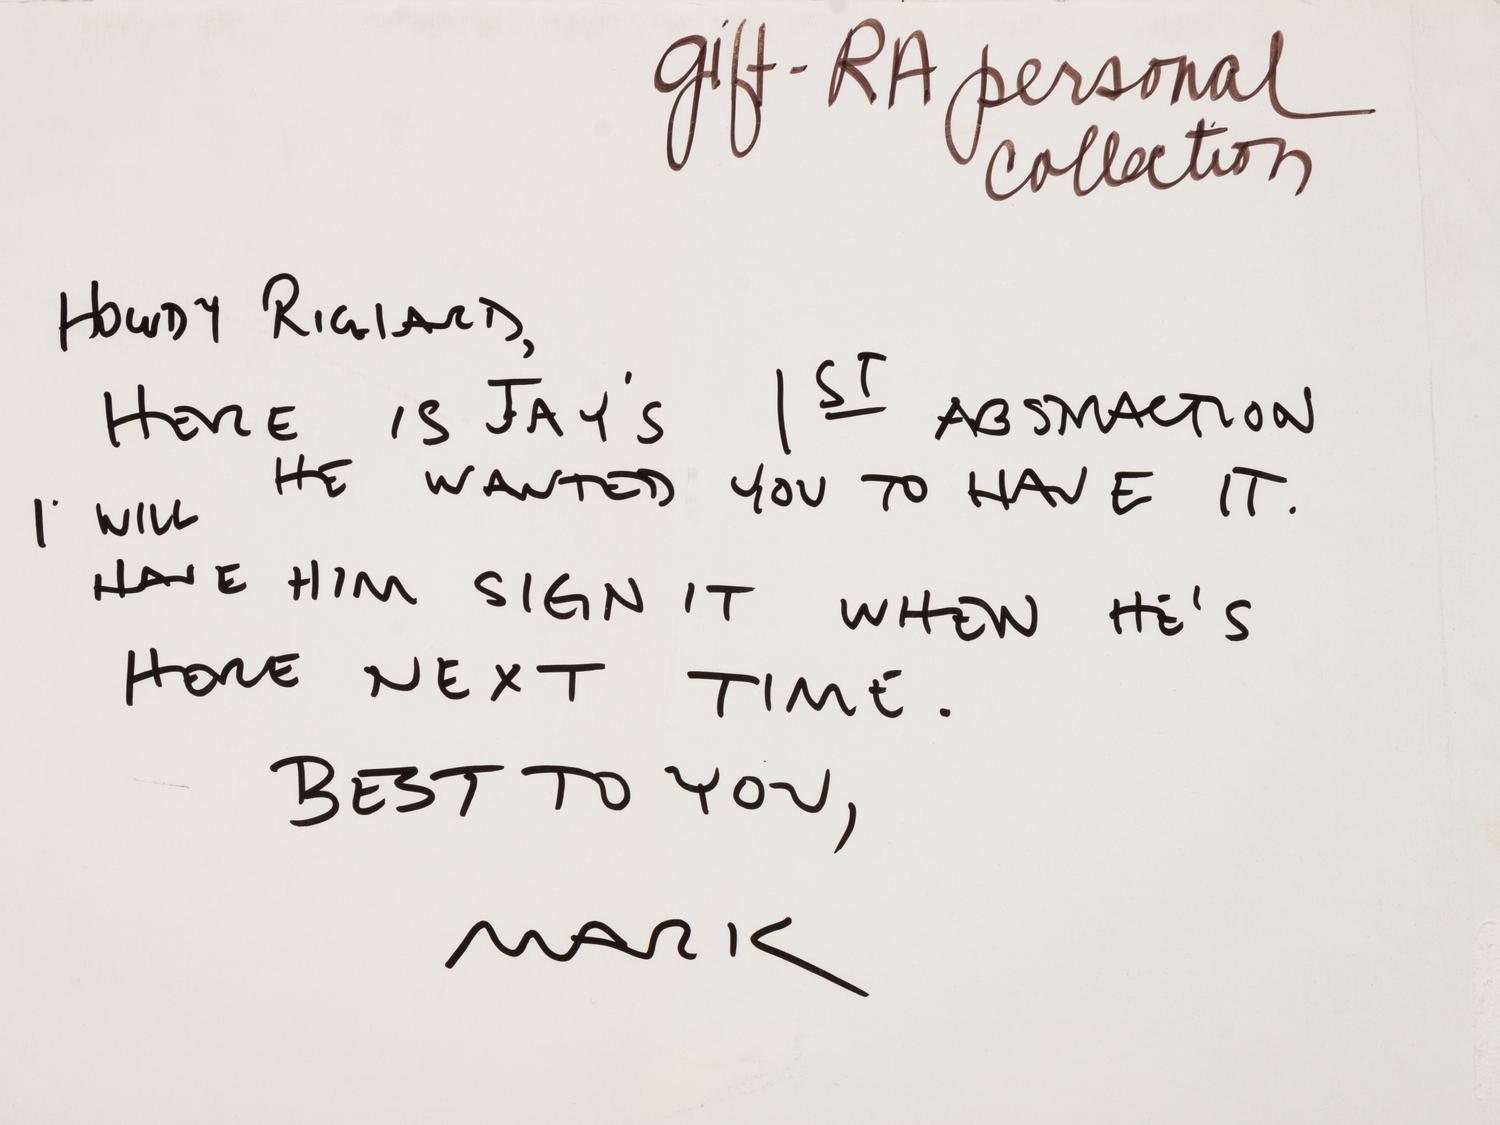 gift - RA personal
collection
HOWDY RICHARD,
HERE IS JAY'S 1ST ABSTRACTION
HE WANTED YOU TO HAVE IT.
I WILL
HAVE HIM SIGN IT WHEN HE'S
HERE NEXT TIME.
BEST TO YOU,
MARK